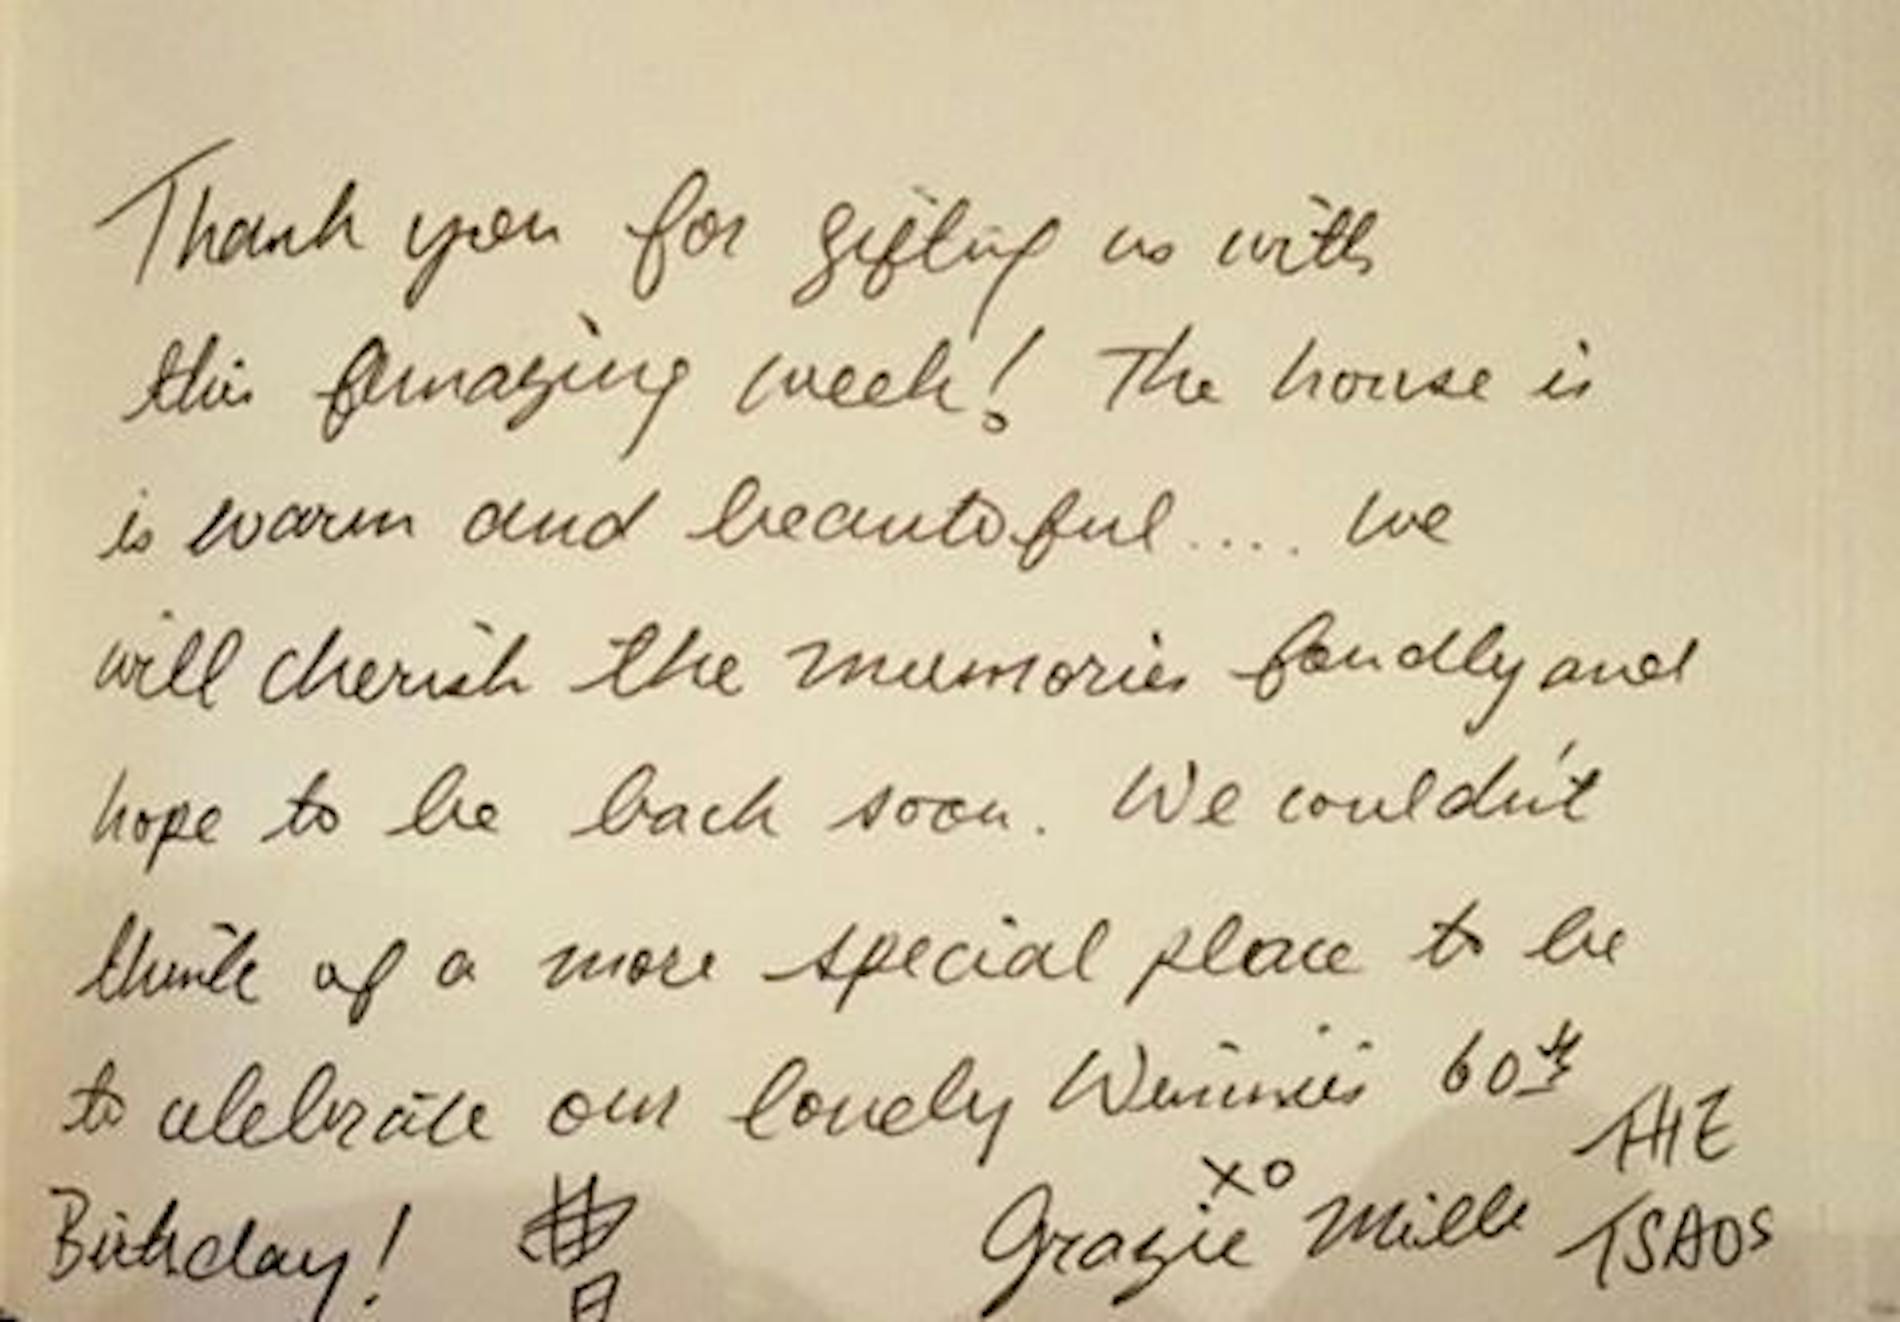 Thank you for gifting us with
this Amazing week! The house is
is warm and beautiful.... We
will cherish the memories fondly and
hope to be back soon. We couldn't
think of a more special place to be
to celebrate our lovely Winnie's 60th
Birthday! 曹
xo
Grazie Mille
THE
TSAOS